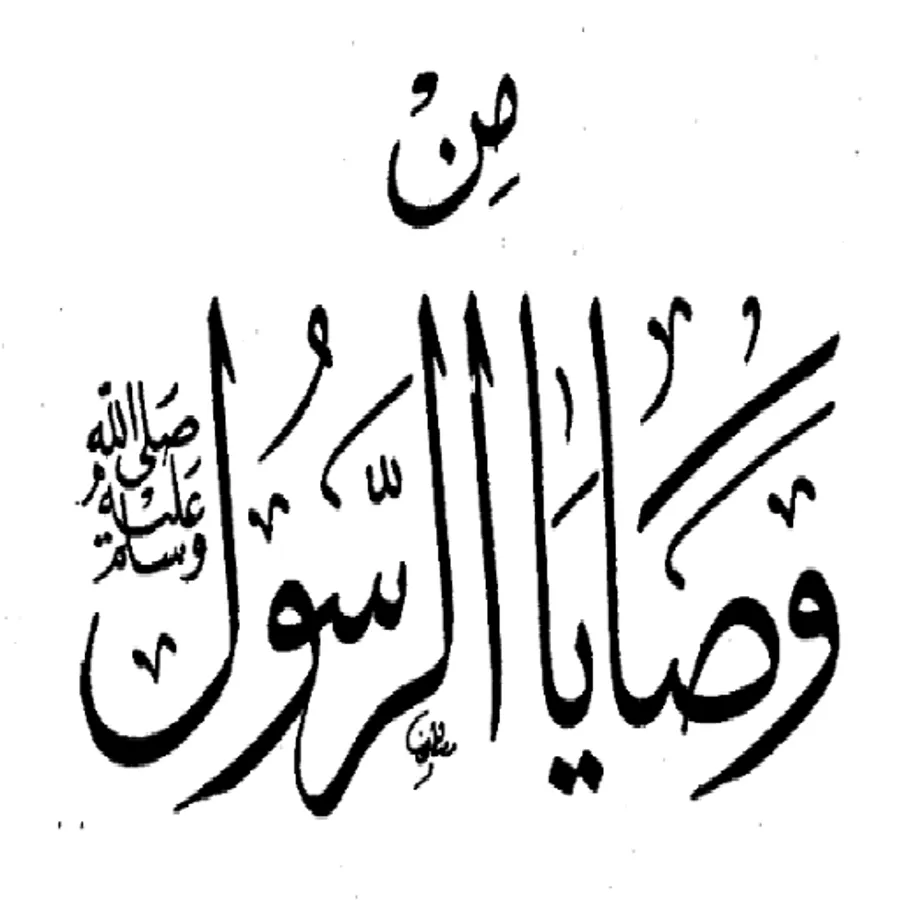 مِنْ
وَصَايَا الرَّسُول
صَلى الله
عَليْهِ
وسلم